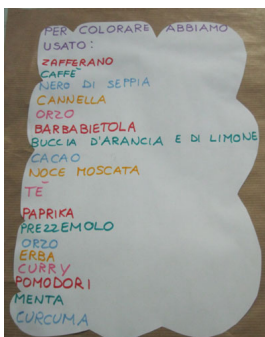 PER COLORARE ABBIAMO
USATO:
ZAFFERANO
CAFFÈ
NERO DI SEPPIA
CANNELLA
ORZO
BARBABIETOLA
BUCCIA D'ARANCIA E DI LIMONE
CACAO
NOCE MOSCATA
TÈ
PAPRIKA
PREZZEMOLO
ORZO
ERBA
CURRY
POMODORI
MENTA
CURCUMA